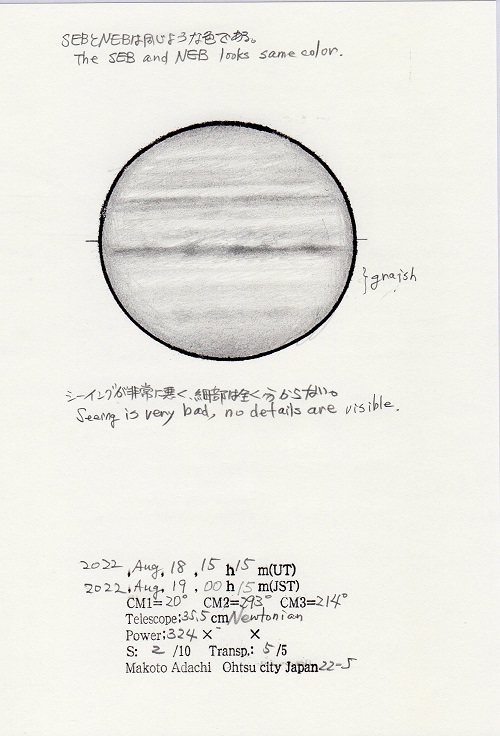 SEBとNEBは同じような色である。
The SEB and NEB looks same color.
} graish
シーイングが非常に悪く、細部は全く分からない。
Seeing is very bad, no details are visible.
2022, Aug, 18, 15 h 15 m(UT)
2022, Aug, 19, 00 h 15 m(JST)
CM1=20° CM2=293° CM3=214°
Telescope:35.5 cm Newtonian
Power:324 × ×
S: 2 /10 Transp.: 5 /5
Makoto Adachi Ohtsu city Japan 22-5